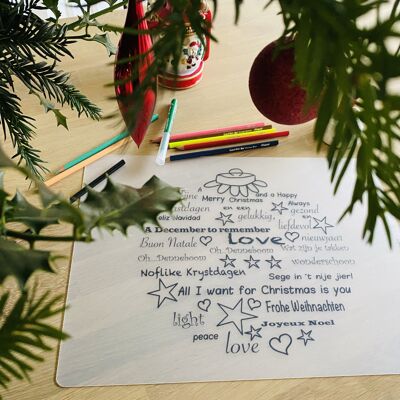 A and a Happy
Merry Christmas
Fijne Always
Kerstdagen en een gezond
Feliz Navidad gelukkig, en
liefdevol
A December to remember nieuwjaar
Buon Natale Love Wat zijn je takken
Oh...Denneboom
Oh...Denneboom wonderschoon
Noflike Krystdagen Sege in 't nije jier!
All I want for Christmas is you
Frohe Weihnachten
light Joyeux Noel
peace love